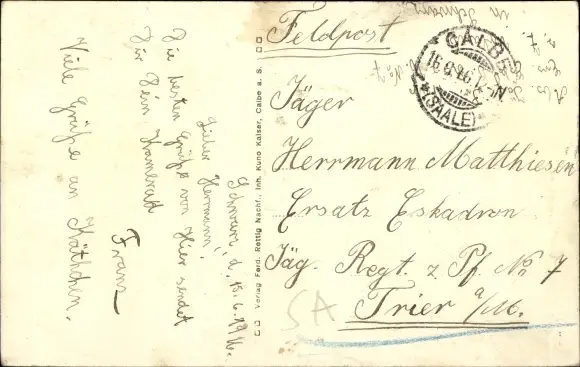 Feldpost
CALBE
(SAALE)
Jäger
Herrmann Matthiesen
Ersatz Eskadron
Jäg. Regt. z. Pf. No 7
Trier a/M.
SA
Verlag Ferd. Rettig Nachf., Inh. Kuno Kaiser, Calbe a. S.
Schwarz, d. 15.6.1916.
Lieber Herrmann!
Die besten Grüße von Hier sendet
Dir Dein Kamerad
Franz
Viele Grüße an Käthchen.